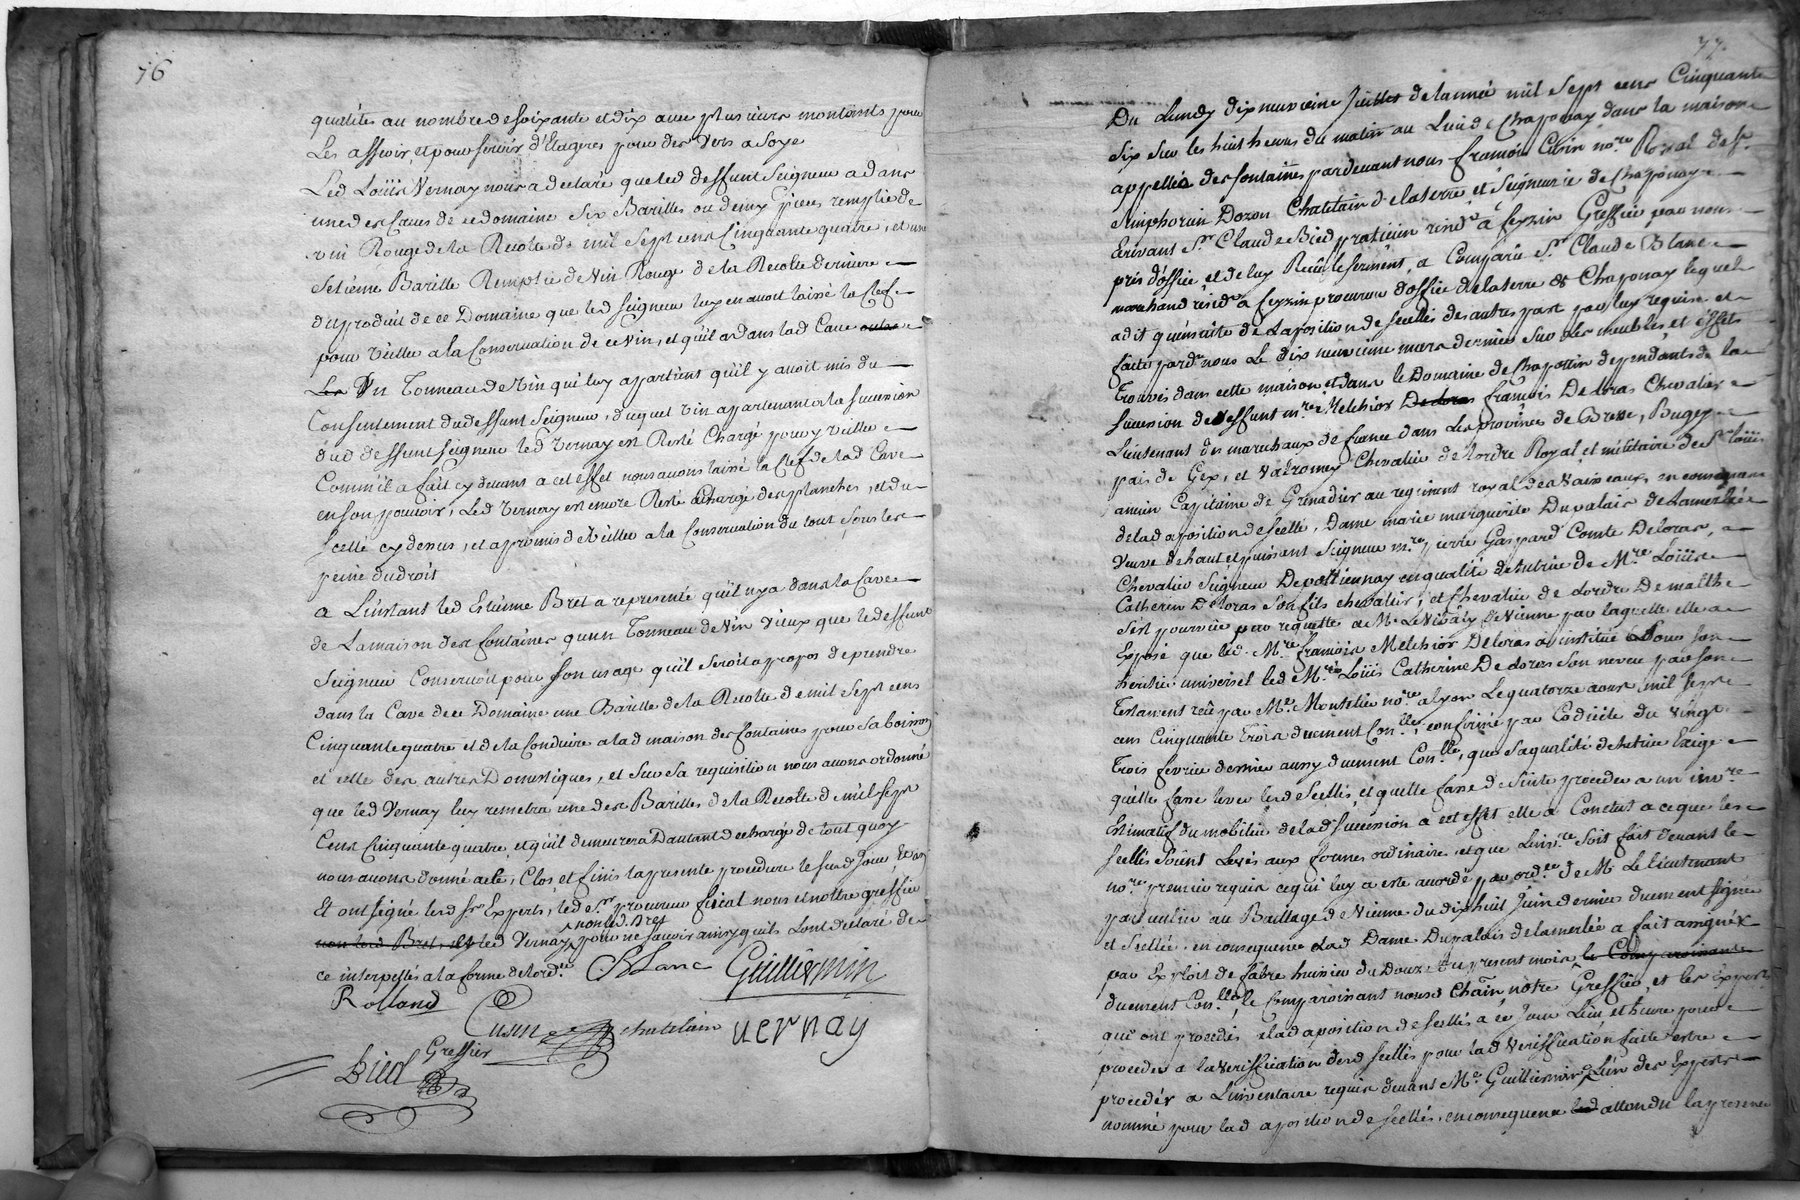 76
qualités au nombre de soixante et dix avec plusieurs montants pour
Les assoir, et pour servir d'Etageres pour des Vers a Soye
Led Loüis Vernay nous a declaré que led deffunt Seigneur a dans
une des Caves de ce domaine Six Barilles ou demy pieces remplie de
vin Rouge de la Recolte de mil Sept cens Cinquante quatre, et une
Setiéme Barille Remplie de Vin Rouge de la Recolte derniere
du produit de ce Domaine que led Seigneur luy en avoit laissé la Clef
pour Veiller a la Conservation de ce Vin, et qu'il a dans lad Cave outre
Le Un Tonneau de Vin qui luy appartient qu'il y avoit mis du
Consentement dud deffunt Seigneur, duquel vin appartenant a la succession
dud deffunt seigneur led Vernay est Resté Chargé pour y veiller
Comm'il a fait cy devant a cet effet nous avons laissé la Clef de lad Cave
en son pouvoir, Led Vernay est encore Resté Chargé des planches, et du
scellé cy dessus, et a promis de Veiller a la Conservation du tout sous les
peine du droit
a L'instant led Estienne Bret a representé qu'il n'y a dans la Cave
de La maison des fontaines qu'un Tonneau de Vin vieux que led deffunt
Seigneur Conservoit pour son usage qu'il seroit a propos de prendre
dans la Cave de ce Domaine une Barille de la Recolte de mil Sept cens
Cinquante quatre et de la Conduire a lad maison des fontaines pour sa boisson
et celle des autres Domestiques, et Sur Sa requisition nous avons ordonné
que led Vernay luy remetra une des Barilles de la Recolte de mil Sept
Cens Cinquante quatre, et qu'il demeurera D'autant dechargé de tout quoy
nous avons donné acte, Clos, et finis la presente procedure le susd Jour, et an
Et ont signé lesd Srs Experts, led Sr procureur fiscal nous et nottre greffier
non led Bret
non led Bret, et led Vernay, pour ne sçavoir ainsy qu'ils L'ont declaré de
ce interpellés a la forme de l'ord.ce Blanc Guilliermin
Rolland
Cusin chatelain vernay
Bied Greffier
77
Du Lundy dix neuvieme Juillet de l'année mil Sept cens Cinquante
Six Sur les huit heures du matin au Lieu de Chaponay dans la maison
appellée des fontaines pardevant nous françois Cusin no.re Royal de St
Simphorien Dozon Chatelain de la terre, et Seigneurie de Chaponay
Ecrivant Sr Claude Bied praticien resid.t a feyzin Greffier par nous
pris d'office, et de luy Reçu le serment, a Comparu Sr Claude Blanc
marchand resid.t a feyzin procureur d'office de la terre de Chaponay lequel
a dit qu'ensuite de L'aposition de scellés des autres part par luy requise et
faite pard.t nous Le dix neuvieme mars dernier Sur les meubles, et effets
Trouvés dans cette maison et dans le Domaine de Chapottin dependants de la
succession de deffunt m.re Melchior Deloras françois Deloras Chevalier
Lieutenant des marechaux de france dans Les province de Bresse, Bugey
païs de Gex, et Valromey Chevalier de l'ordre Royal, et militaire de St Loüis
ancien Capitaine de Grenadier au regiment royal des Vaisseaux, en consequence
de lad aposition de scellé, Dame marie marguerite Dupalais de Lamerlée
Veuve de haut et puissant Seigneur m.re pierre Gaspard Comte Deloras,
Chevalier Seigneur De en qualité de tutrice de M.re Loüis
Catherin Deloras Son fils chevalier, et Chevalier de L'ordre De malthe
s'est pourvüe par requette a M.r Le Vibaly de Vienne par laquelle elle a
Exposé que led. M.re françois Melchior Deloras a institué pour son
heritier universel led M.re Loüis Catherin Deloras Son neveu par Son
Testament reçu par M.e no.re a Lyon Le quatorze aoust mil Sept
cens Cinquante Trois duement Con.llé, confirmé par Codicile du Vingt
Trois fevrier dernier aussy duement Con.llé, que Sa qualité de tutrice Exige
qu'elle fasse lever lesd Scellés, et qu'elle fasse de Suite proceder a un inv.re
Estimatif du mobilier de lad succession a cet effet elle a Conclut a ce que les
scellés soient Levés aux formes ordinaire, et que L'inv.re Soit fait devant le
no.re premier requis ce qui luy a esté accordé par ord.ce de M Le lieutenant
particulier au Bailliage de Vienne du dix huit Juin dernier duement signée
et Scellée. en consequence Lad Dame Dupalais de lamerlée a fait assigner
par Exploit de fabre huissier du Douze du present mois le Comparoissante
duement Con.llé, le Comparoissant nousd Chatain notre Greffier, et les Experts
qui ont procedés a lad aposition de scellés a ce Jour Lieu, et heure pour
proceder a la Verification desd scellés pour lad Verification faite estre
procedés a L'inventaire requis devant M.e Guilliermin L'un des Experts
nommé pour lad aposition de scellés, en consequence led attendu la presence